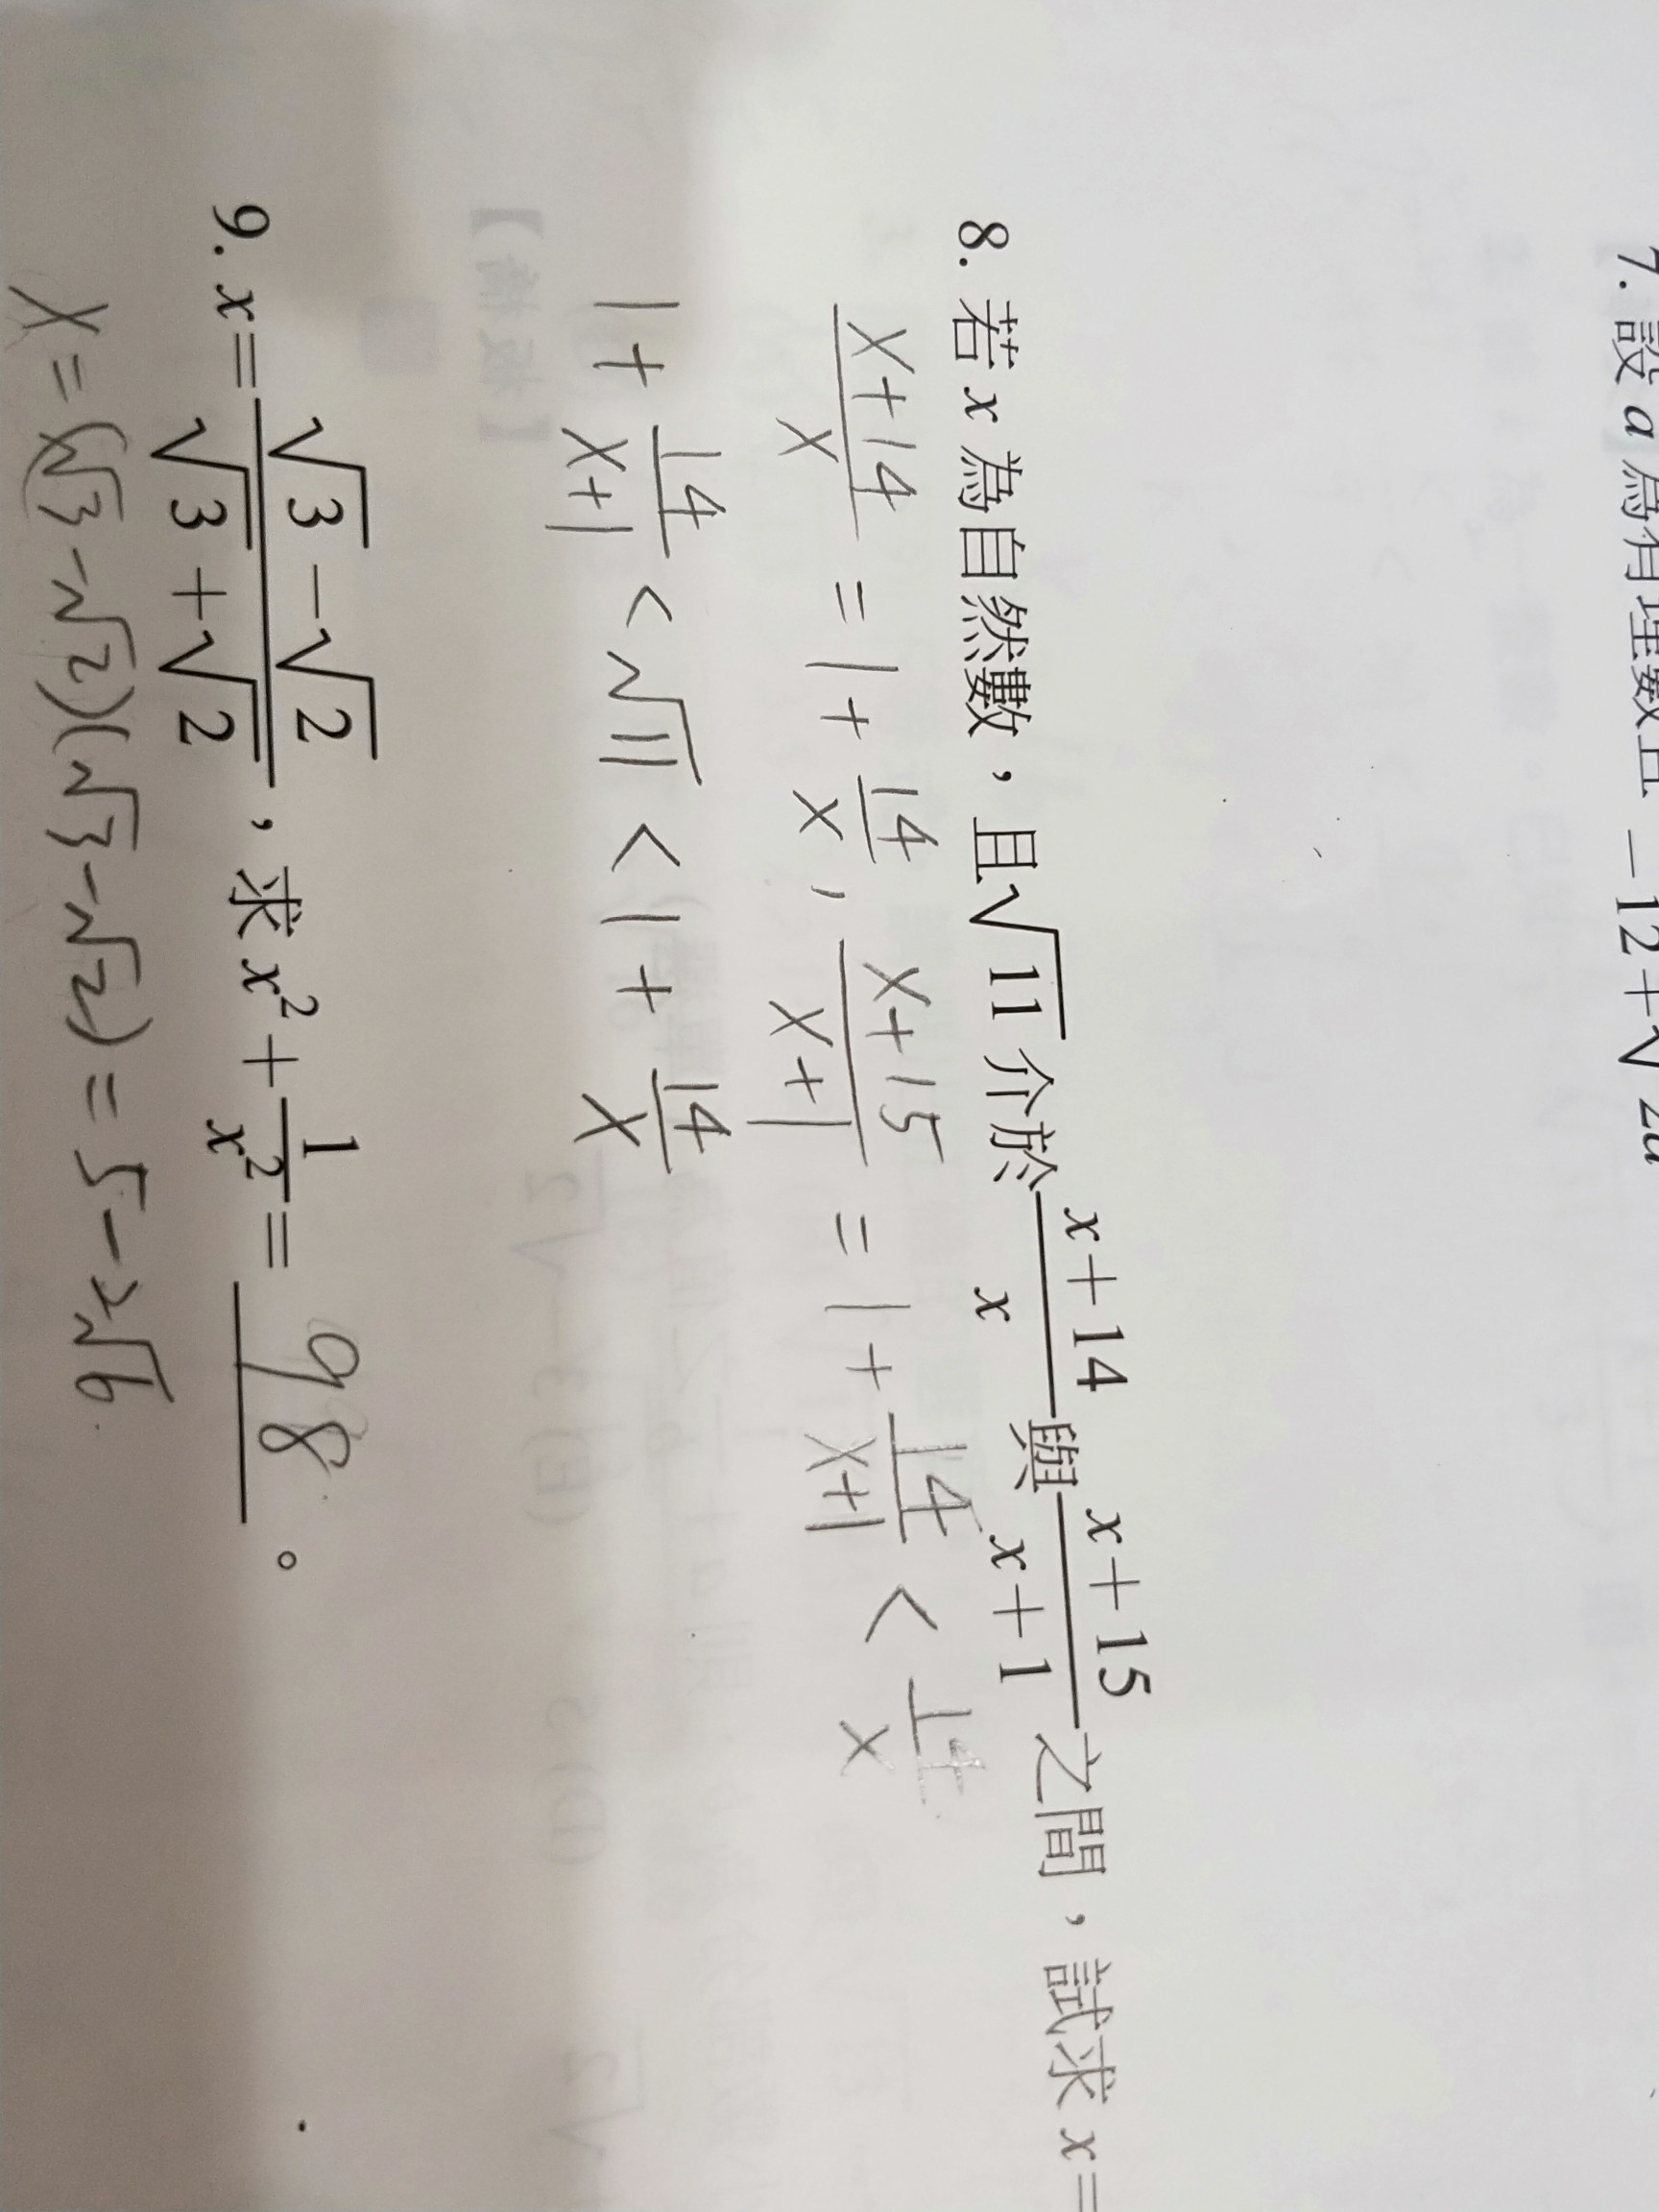 7. 設 a 為有理數且 -12+√2a
8. 若 x 為自然數，且√11 介於 (x+14)/x 與 (x+15)/(x+1) 之間，試求 x=
(x+14)/x = 1 + 14/x , (x+15)/(x+1) = 1 + 14/(x+1) < 14/x
1 + 14/(x+1) < √11 < 1 + 14/x
9. x = (√3-√2)/(√3+√2)，求 x² + 1/x² = 98 。
x = (√3-√2)(√3-√2) = 5-2√6